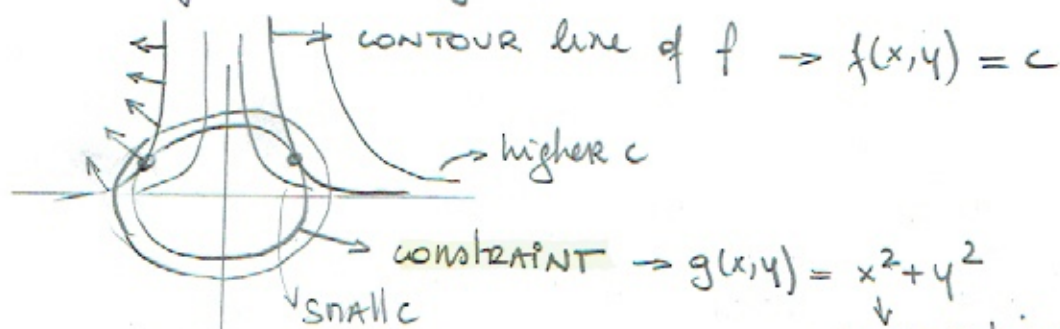 CONTOUR line of f → f(x,y) = c
→ higher c
constRAINT → g(x,y) = x² + y²
small c